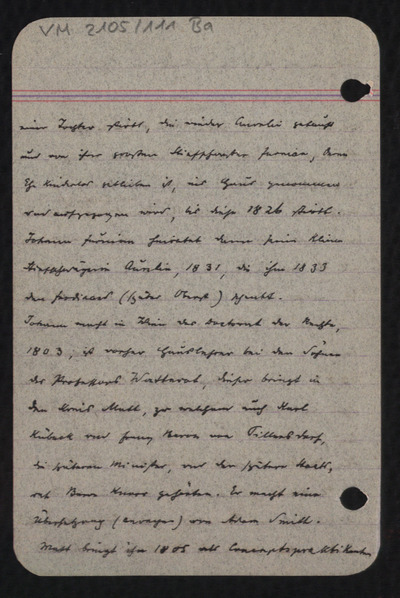 VM 2105/111 Ba
einer Tochter stirbt, die wieder Aurelia getauft
und von ihrer grossen Stiefschwester Fannia, deren
Ehe kinderlos geblieben ist, ins Haus genommen
und aufgezogen wird, bis diese 1826 stirbt.
Johann heiratet dann seine kleine
Stiefschwägerin Aurelia, 1831, die ihm 1833
den Ferdinand (später Oberst) schenkt.
Johann macht in Wien das Doctorat der Rechte,
1803, ist vorher Hauslehrer bei den Söhnen
des Professors Watteroth, dieser bringt in
den Kreis Mutt, zu welchem auch Karl
Kübeck und Franz Baron von Pillersdorf,
die späteren Minister, und der spätere Staats-
rat Baron Knorr gehörten. Er macht eine
Übersetzung von Adam Smith.
Mutt bringt ihn 1805 als Conceptspraktikanten